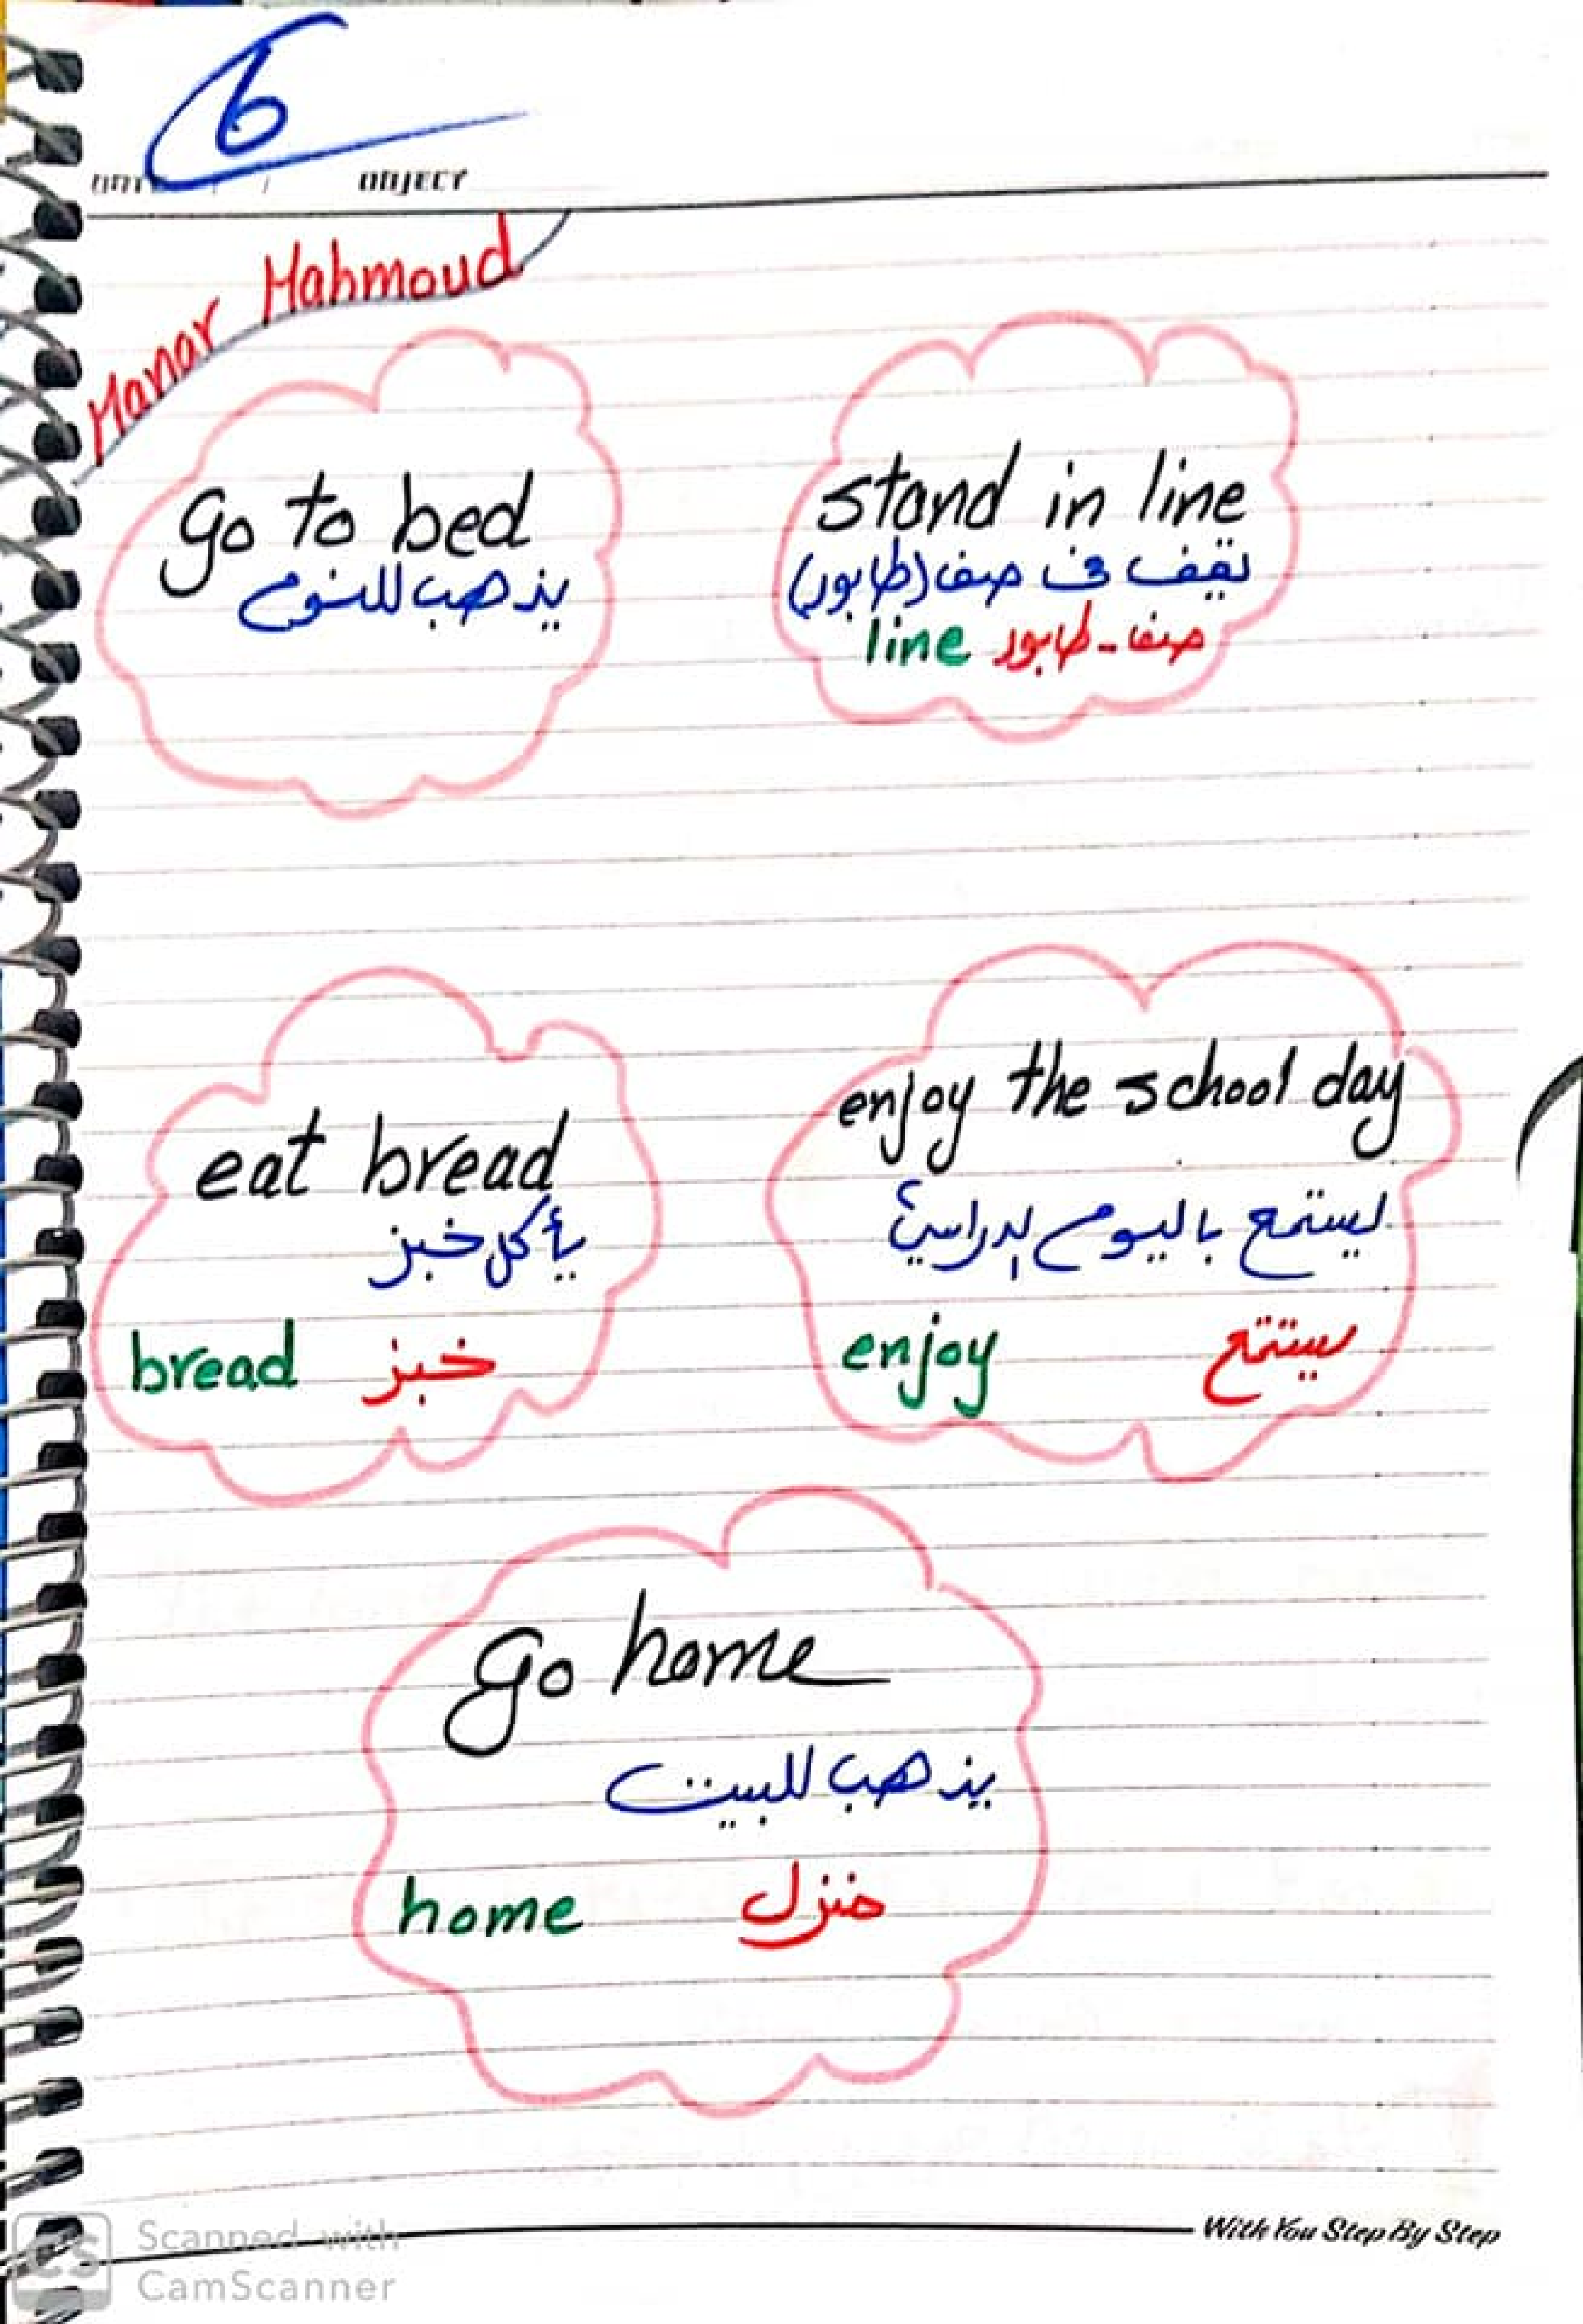 6
DATE / / OBJECT
Manar Mahmoud
go to bed
يذهب للنوم
stand in line
يقف فى صف (طابور)
line صف - طابور
eat bread
يأكل خبز
bread خبز
enjoy the school day
يستمتع باليوم الدراسي
enjoy يستمتع
go home
يذهب للبيت
home منزل
With You Step By Step
CS Scanned with
CamScanner